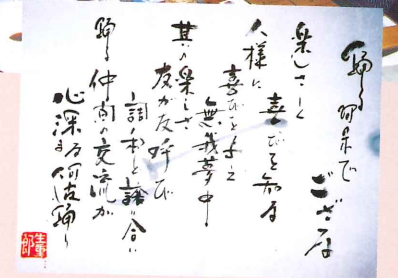 踊る阿呆でござる
楽しさと喜びを知る
人様に喜びを与え
無我夢中
其の楽しさ
友が友呼び
調和と譲り合い
踊る仲間の交流が
心深まる阿波踊り